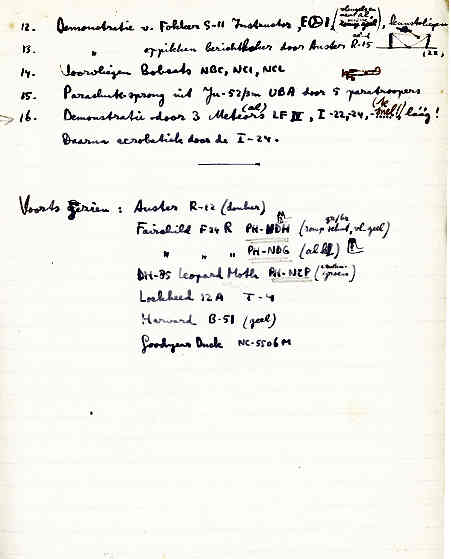 12. Demonstratie v. Fokker S-11 Instructor, kunstvliegen
13. " oppikken berichtkoker door Auster R-15
14. Voorvliegen Bobcats NBC, NCI, NCL
15. Parachutesprong uit Ju-52/3m UBA door 5 paratroopers
16. Demonstratie door 3 Meteors LF IV, I-22, 24, laag!
Daarna acrobatiek door de I-24.
Voorts gezien: Auster R-12 (donker)
Fairchild F24 R PH-NDH
" " " PH-NDG
DH-85 Leopard Moth PH-NZP
Lockheed 12A T-4
Harvard B-51 (geel)
Goodyear Duck NC-5506M